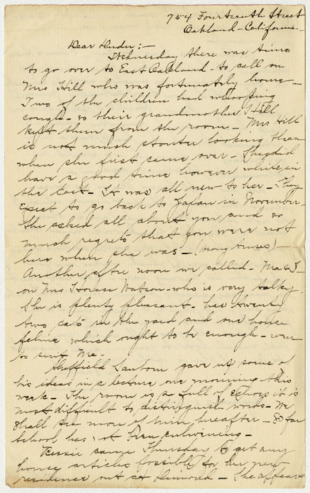 754 Fourteenth Street
Oakland California
Dear Dudu:-
Wednesday there was time
to go over to East Oakland to call on
Mrs Hill who was fortunately home -
Two of the children had whooping
cough - so their grandmother Hill
kept them from the room - Mrs Hill
is not much stouter looking than
when she first came over - They did
have a good time however while in
the East - It was all new to her - They
expect to go back to Japan in November.
She asked all about you and so
much regrets that you were not
here when she was - (many times) -
Another afternoon we called -
on Mrs Horace Watson who is very
She is plenty pleasant - has twenty
two cats in the yard and one house
feline which ought to be enough -
to suit me.
Sheffield Sanborn gave us some of
his ideas in a lecture one morning this
week - The room is so full of echoes it is
most difficult to distinguish words - We
shall see more of him hereafter -
school
Bessie came Thursday to get any
house articles possible for her new
residence out at - She appears